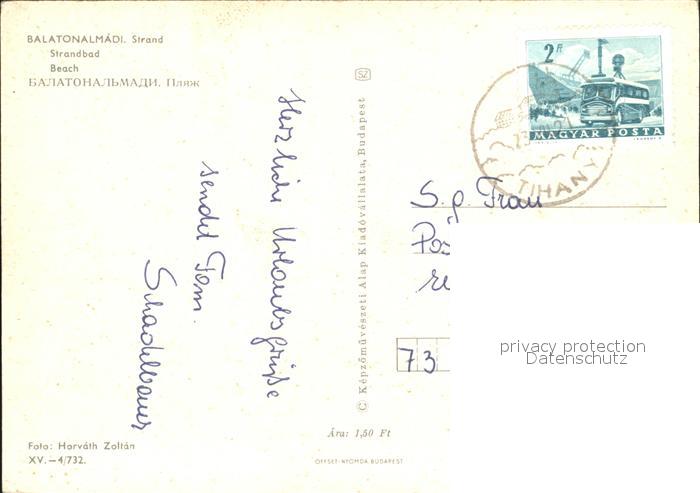 BALATONALMÁDI. Strand
Strandbad
Beach
БАЛАТОНАЛЬМАДИ. Пляж
SZ
2 Ft
MAGYAR POSTA
TIHANY
Herzliche Urlaubsgrüße
sendet Fam.
Schadelbauer
© Képzőművészeti Alap Kiadóvállalata, Budapest
S. g. Frau
73
privacy protection
Datenschutz
Ára: 1,50 Ft
Foto: Horváth Zoltán
XV.—4/732.
OFFSET-NYOMDA BUDAPEST